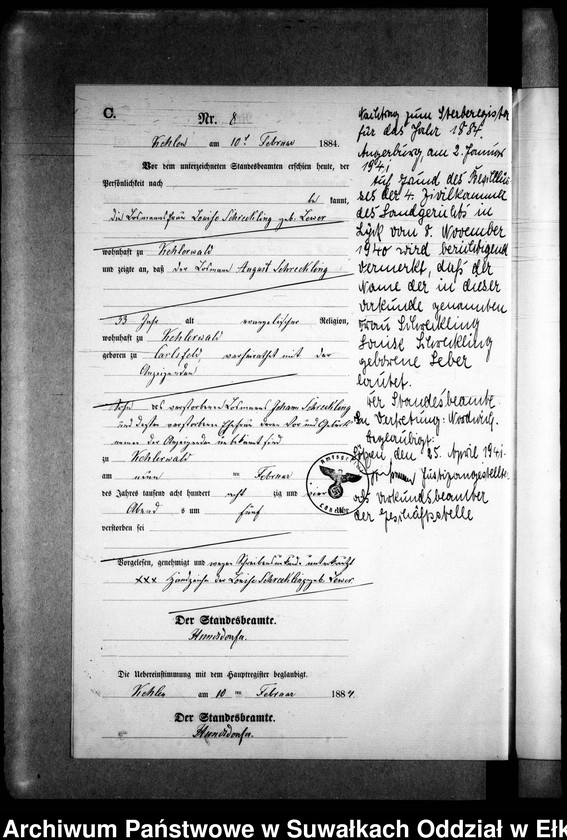 C.
Nr. 8
Kehlen am 10ᵗ Februar 1884.
Vor dem unterzeichneten Standesbeamten erschien heute, der
Persönlichkeit nach
be kannt,
die Losmannsfrau Louise Schreckling geb. Lewer
wohnhaft zu Kehlerwald
und zeigte an, daß der Losmann August Schreckling
53 Jahr alt evangelischer Religion,
wohnhaft zu Kehlerwald
geboren zu Carlsfeld, verheirathet mit der
Anzeigenden
Sohn des verstorbenen Losmanns Johann Schreckling
und dessen verstorbenen Ehefrau deren Vor und Geburts-
namen der Anzeigenden unbekannt sind
zu Kehlerwald
am neun ten Februar
des Jahres tausend acht hundert acht zig und vier
Abends um fünf Uhr
verstorben sei
Vorgelesen, genehmigt und wegen Schreibensunkunde unterkreuzt
xxx Handzeichen der Louise Schreckling geb. Lewer
Der Standesbeamte.
Die Uebereinstimmung mit dem Hauptregister beglaubigt.
Kehlen am 10 ten Februar 1884.
Der Standesbeamte.
Nachtrag zum Sterberegister
für das Jahr 1884.
Angerburg, am 2. Januar
194
Auf Grund des Beschlus-
ses der 4. Zivilkammer
des Landgerichts in
Lyck vom 8. November
1940 wird berichtigend
vermerkt, daß der
Name der in dieser
Urkunde genannten
Frau Schreckling
Louise Schreckling
geborene Leber
lautet.
Der Standesbeamte
In Vertretung:
Beglaubigt:
den 25. April 1941
Justizangestellter
als Urkundsbeamter
der Geschäftsstelle
Amtsgericht
Archiwum Państwowe w Suwałkach Oddział w Ełk